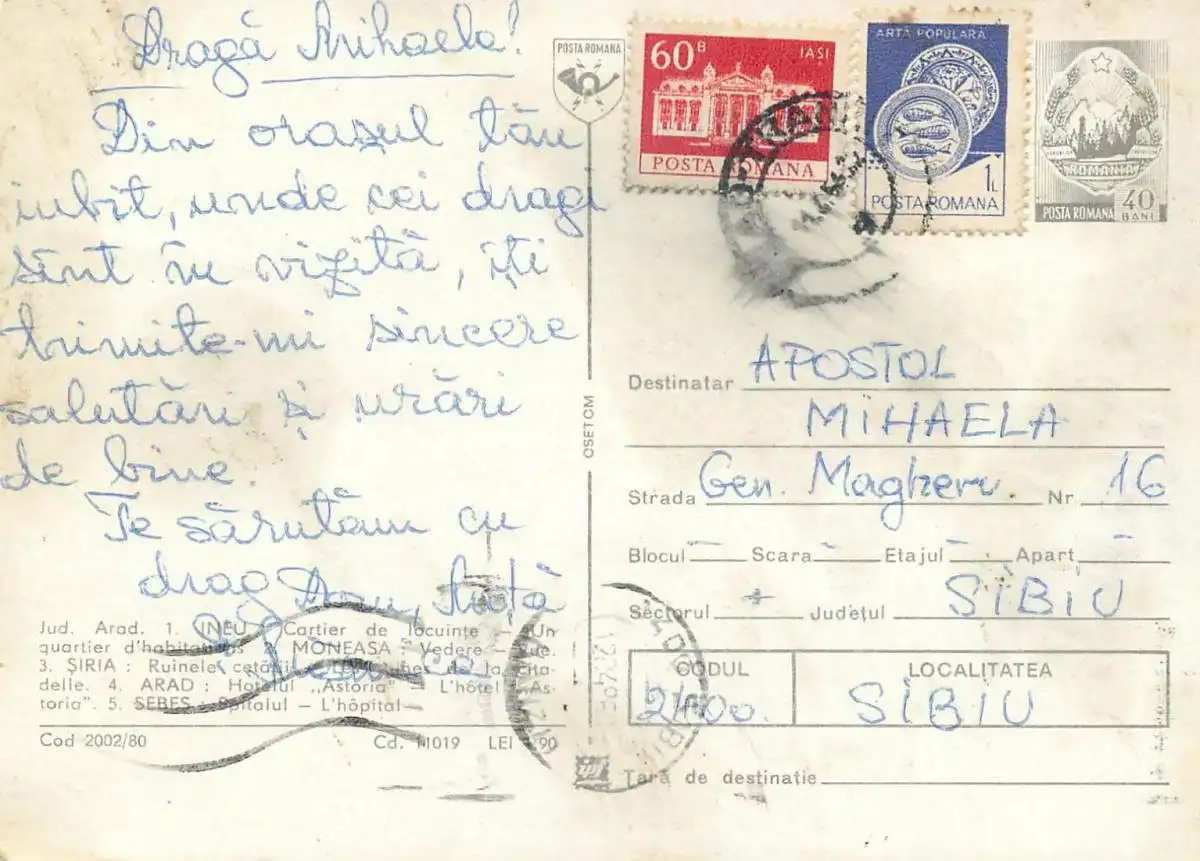 Dragă Mihaela!
Din orașul tău
iubit, unde cei dragi
sînt în vizită, îți
trimite-mi sincere
salutări și urări
de bine.
Te sărutăm cu
drag
Jud. Arad. 1. INEU : Cartier de locuințe – Un
quartier d'habitations 2. MONEASA : Vedere – Vue.
3. ȘIRIA : Ruinele cetății – de la cita-
delle. 4. ARAD : Hotelul „Astoria" – L'hôtel „As-
toria". 5. SEBEȘ : Spitalul – L'hôpital
Cod 2002/80
Cd. 11019 LEI 90
POSTA ROMANA
OSETCM
60 B
IAȘI
POSTA ROMANA
ARTĂ POPULARĂ
1 L
POSTA ROMANA
ROMANIA
POSTA ROMANA 40 BANI
Destinatar APOSTOL
MIHAELA
Strada Gen. Magheru Nr 16
Blocul – Scara – Etajul – Apart –
Sectorul Județul SIBIU
CODUL LOCALITATEA
2400. SIBIU
Țară de destinație